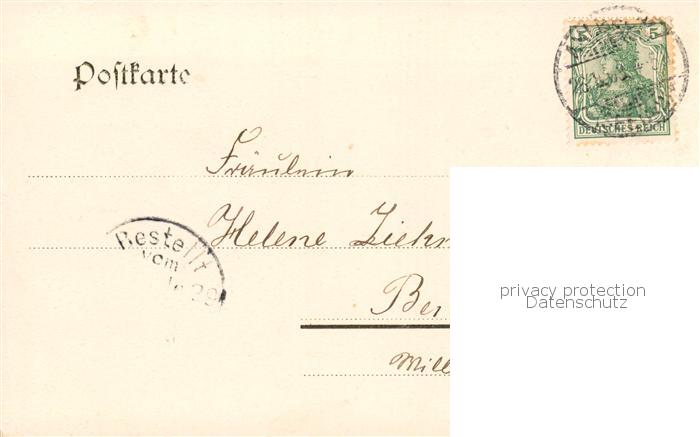 Postkarte
5 5
DEUTSCHES REICH
Fräulein
Helene Ziehm
Bestellt
vom
Ber
Will
privacy protection
Datenschutz